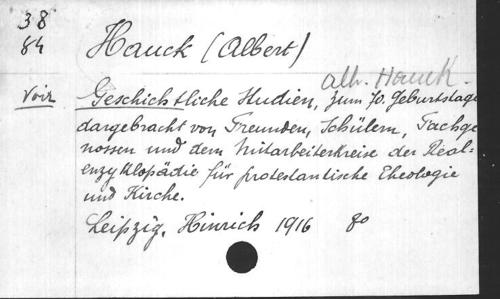 38
84
Hauck (Albert)
Alb. Hauck.
Voir Geschichtliche Studien, zum 70. Geburtstage
dargebracht von Freunden, Schülern, Fachge
nossen und dem Mitarbeiterkreise der Real-
enzyklopädie für protestantische Theologie
und Kirche.
Leipzig, Hinrich 1916 8o